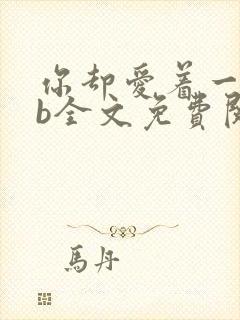 你却爱着一
b全文免费阅
馬丹